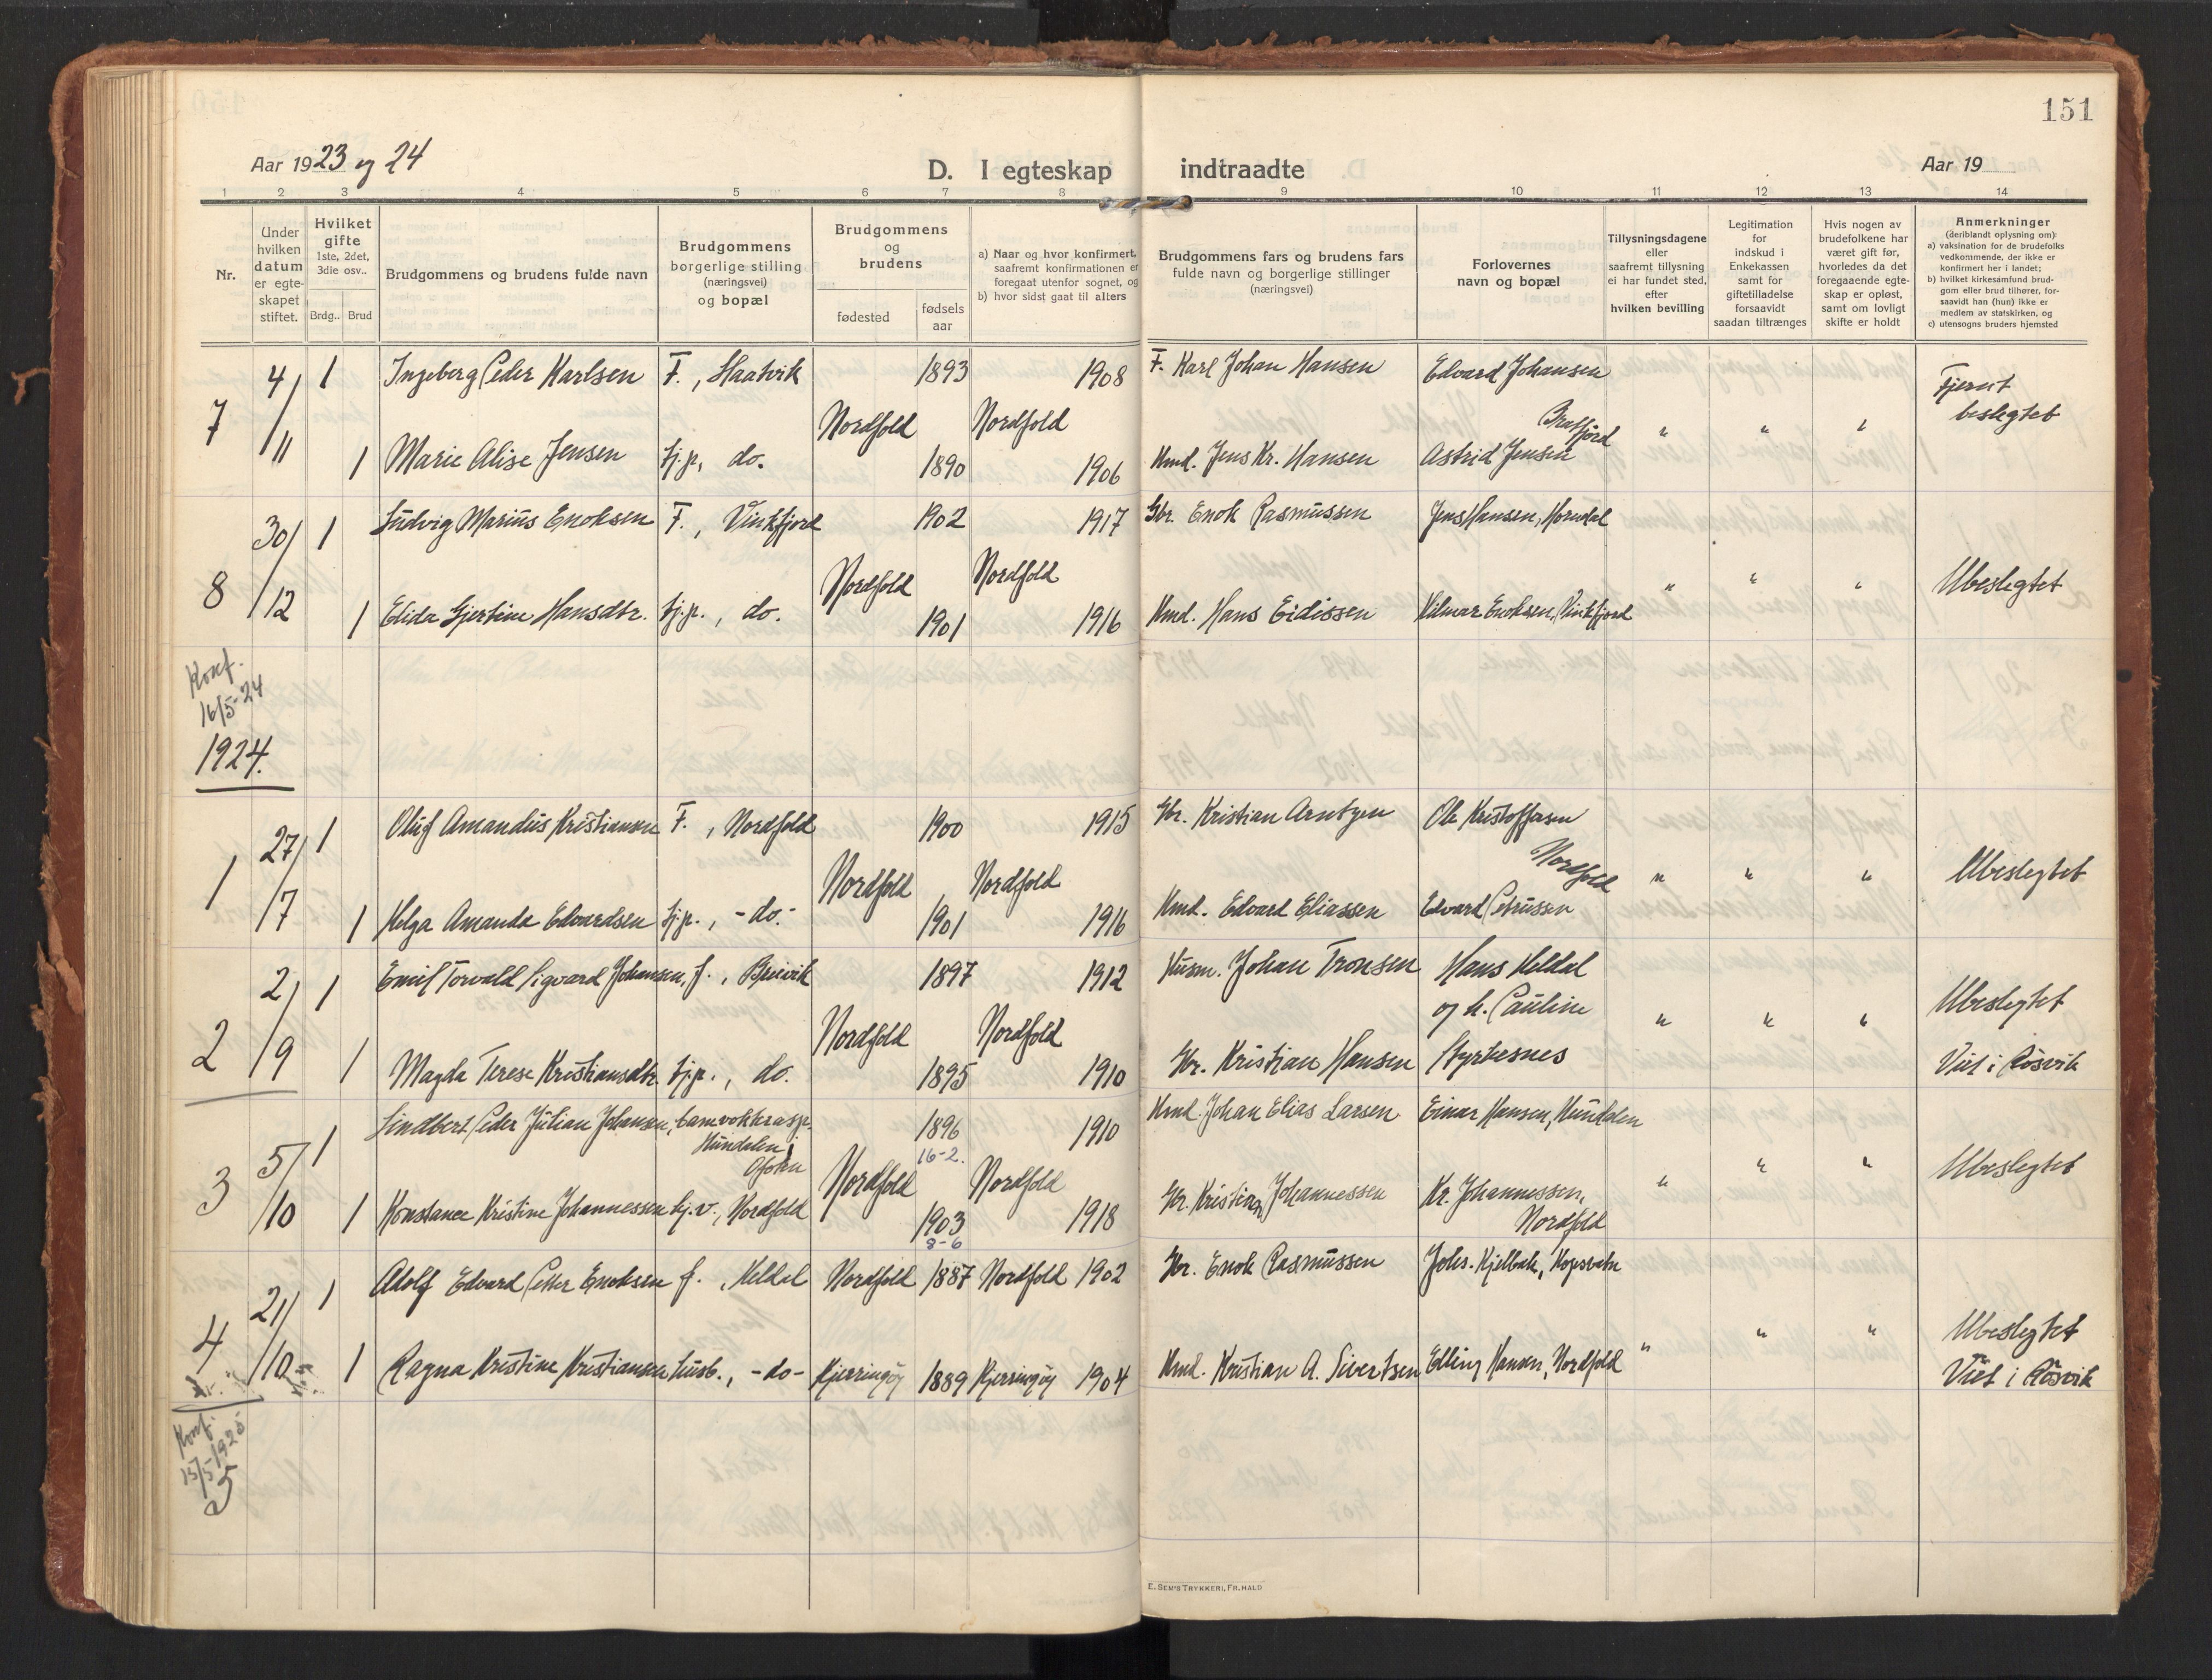 151
Aar 1923 og 24
D. I egteskap indtraadte
Aar 19
1 2 3 4 5 6 7 8 9 10 11 12 13 14
Nr.
Under hvilken datum er egte-skapet stiftet.
Hvilket gifte 1ste, 2det, 3die osv..
Brdg.. Brud
Brudgommens og brudens fulde navn
Brudgommens borgerlige stilling (næringsvei) og bopæl
Brudgommens og brudens
fødested
fødsels aar
a) Naar og hvor konfirmert, saafremt konfirmationen er foregaat utenfor sognet, og
b) hvor sidst gaat til alters
Brudgommens fars og brudens fars fulde navn og borgerlige stillinger (næringsvei)
Forlovernes navn og bopæl
Tillysningsdagene eller saafremt tillysning ei har fundet sted, efter hvilken bevilling
Legitimation for indskud i Enkekassen samt for giftetilladelse forsaavidt saadan tiltrænges
Hvis nogen av brudefolkene har været gift før, hvorledes da det foregaaende egte-skap er opløst, samt om lovligt skifte er holdt
Anmerkninger
(deriblandt oplysning om):
a) vaksination for de brudefolks vedkommende, der ikke er konfirmert her i landet;
b) hvilket kirkesamfund brud-gom eller brud tilhører, for-saavidt han (hun) ikke er medlem av statskirken, og
c) utensogns bruders hjemsted
7 4/11 1 Ingeberg Peder Karlsen F., Slaatvik 1893 1908 F. Karl Johan Hansen Edvard Johansen Fjernt beslegtet
Nordfold Nordfold " " "
1 Marie Alise Jensen hj.p., do. 1890 1906 Kmd. Jens Kr. Hansen Astrid Jensen
8 30/12 1 Ludvig Marius Enoksen F., Vinkfjord 1902 1917 Gbr. Enok Rasmussen Jens Hansen, Horndal
Nordfold Nordfold " " " Ubeslegtet
1 Elida Gjertine Hansdtr. hj.p., do. 1901 1916 Kmd. Hans Eidissen Hilmar Enoksen, Vinkfjord
Konf.
16/5-24
1924.
1 27/7 1 Oluf Amandus Kristiansen F., Nordfold 1900 1915 Gbr. Kristian Arntzen Ole Kristoffersen
Nordfold Nordfold Nordfold " " " Ubeslegtet
1 Helga Amanda Edvardsen hj.p., -do.- 1901 1916 Kmd. Edvard Eliassen Edvard Petrussen
2 2/9 1 Emil Torvald Sigvard Johansen, f., Breivik 1897 1912 Husm. Johan Tronsen Hans Heldal
Nordfold Nordfold og h. Pauline " " " Ubeslegtet
1 Magda Terese Kristiansdtr. hj.p., do. 1895 1910 Gbr. Kristian Hansen Styrkesnes Viet i Røsvik
3 5/10 1 Lindbert Peder Julian Johansen, banevokterasp. Hundalen i Ofoten 1896 16-2. 1910 Kmd. Johan Elias Larsen Einar Hansen, Hundalen
Nordfold Nordfold " " " Ubeslegtet
1 Konstance Kristine Johannessen hj.v., Nordfold 1903 8-6 1918 Gbr. Kristian Johannessen Kr. Johannessen, Nordfold
4 21/10 1 Adolf Edvard Petter Enoksen f., Heldal Nordfold 1887 Nordfold 1902 Gbr. Enok Rasmussen Johs. Kjelbak, Kopsvatn
" " " Ubeslegtet
1 Ragna Kristine Kristiansen husb., -do- Kjerringøy 1889 Kjerringøy 1904 Kmd. Kristian A. Sivertsen Elling Hansen, Nordfold Viet i Røsvik
Konf.
15/5-1925
E. SEM'S TRYKKERI, FR.HALD